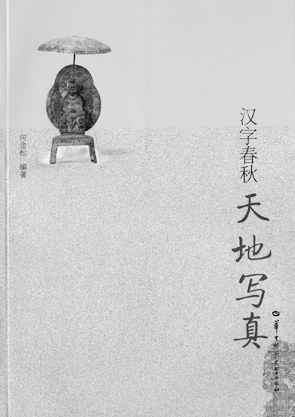 汉字春秋
天地写真
何金松 编著